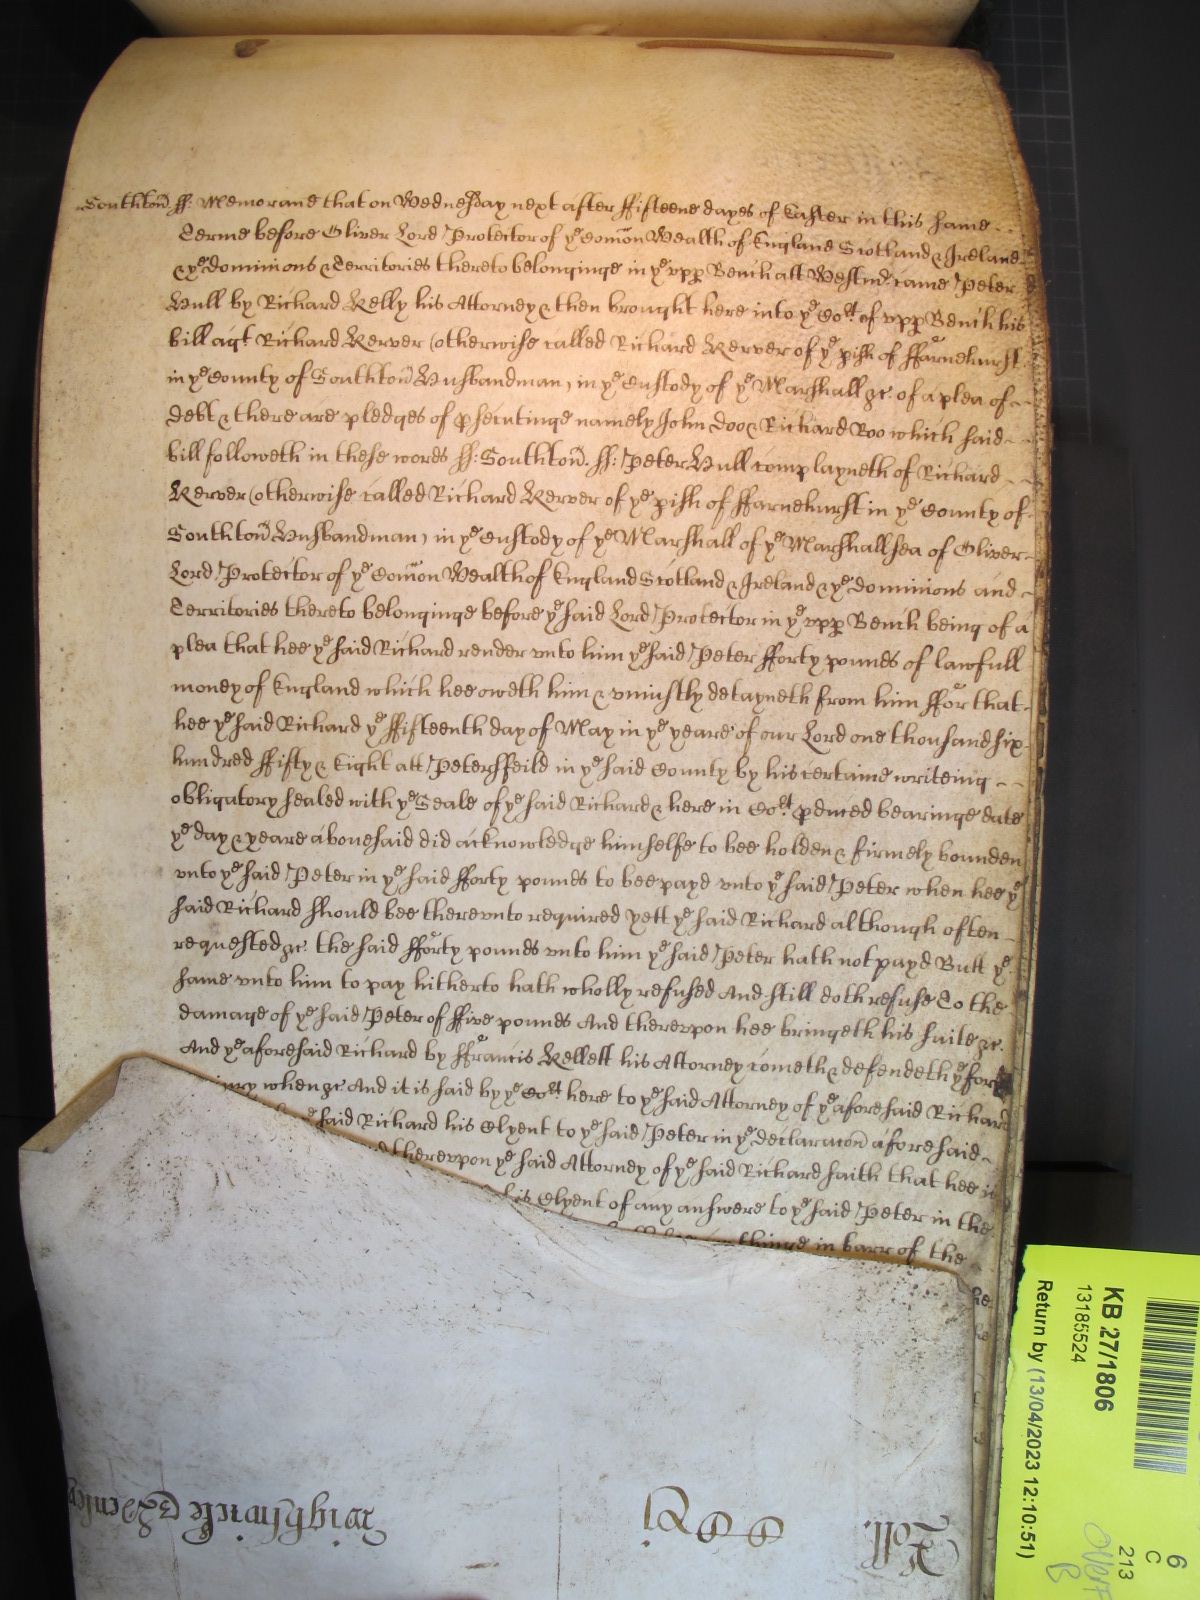 Southton̄ ss: Memorand that on Wednesday next after ffifteene dayes of Easter in this same
Terme before Oliver Lord Protector of yͤ Com̄on Wealth of England Scotland & Ireland
& yͤ dominions & Territories thereto belonginge in yͤ vpp Bench att Westmr came Peter
Hull by Richard Kelly his Attorney & then brought here into yͤ Cort of vpp Bench his
bill agt Richard Kerver (otherwise called Richard Kerver of yͤ pish of ffarnehurst
in yͤ County of Southton̄ Husbandman) in yͤ Custody of yͤ Marshall &c. of a plea of
debt & there are pledges of psecutinge namely John Doo & Richard Roo which said
bill followeth in these words ss: Southton̄. ss: Peter Hull complayneth of Richard
Kerver (otherwise called Richard Kerver of yͤ pish of ffarnehurst in yͤ County of
Southton̄ Husbandman) in yͤ Custody of yͤ Marshall of yͤ Marshallsea of Oliver
Lord Protector of yͤ Com̄on Wealth of England Scotland & Ireland & yͤ dominions and
Territories thereto belonginge before yͤ said Lord Protector in yͤ vpp Bench being of a
plea that hee yͤ said Richard render vnto him yͤ said Peter fforty pounds of lawfull
money of England which hee oweth him & vniustly detayneth from him ffor that
hee yͤ said Richard yͤ ffifteenth day of May in yͤ yeare of our Lord one thousand six
hundred ffifty & Eight att Petersfeild in yͤ said County by his certaine writeing
obligatory sealed with yͤ Seale of yͤ said Richard & here in Cort pduced bearinge date
yͤ day & yeare abouesaid did acknowledge himselfe to bee holden & firmely bounden
vnto yͤ said Peter in yͤ said fforty pounds to bee payd vnto yͤ said Peter when hee yͤ
said Richard should bee therevnto required yett yͤ said Richard although often
requested &c. the said fforty pounds vnto him yͤ said Peter hath not payd Butt yͤ
same vnto him to pay hitherto hath wholly refused And still doth refuse To the
damage of yͤ said Peter of ffive pounds And therevpon hee bringeth his suite &c.
And yͤ aforesaid Richard by ffrancis Kellett his Attorney cometh & defendeth yͤ force
when &c. And it is said by yͤ Cort here to yͤ said Attorney of yͤ aforesaid Richard
said Richard his Clyent to yͤ said Peter in yͤ declaracon̄ aforesaid
therevpon yͤ said Attorney of yͤ said Richard saith that hee is
his Clyent of any answere to yͤ said Peter in the
thinge in barr of the
KB 27/1806
13185524
Return by (13/04/2023 12:10:51)
6
C
213